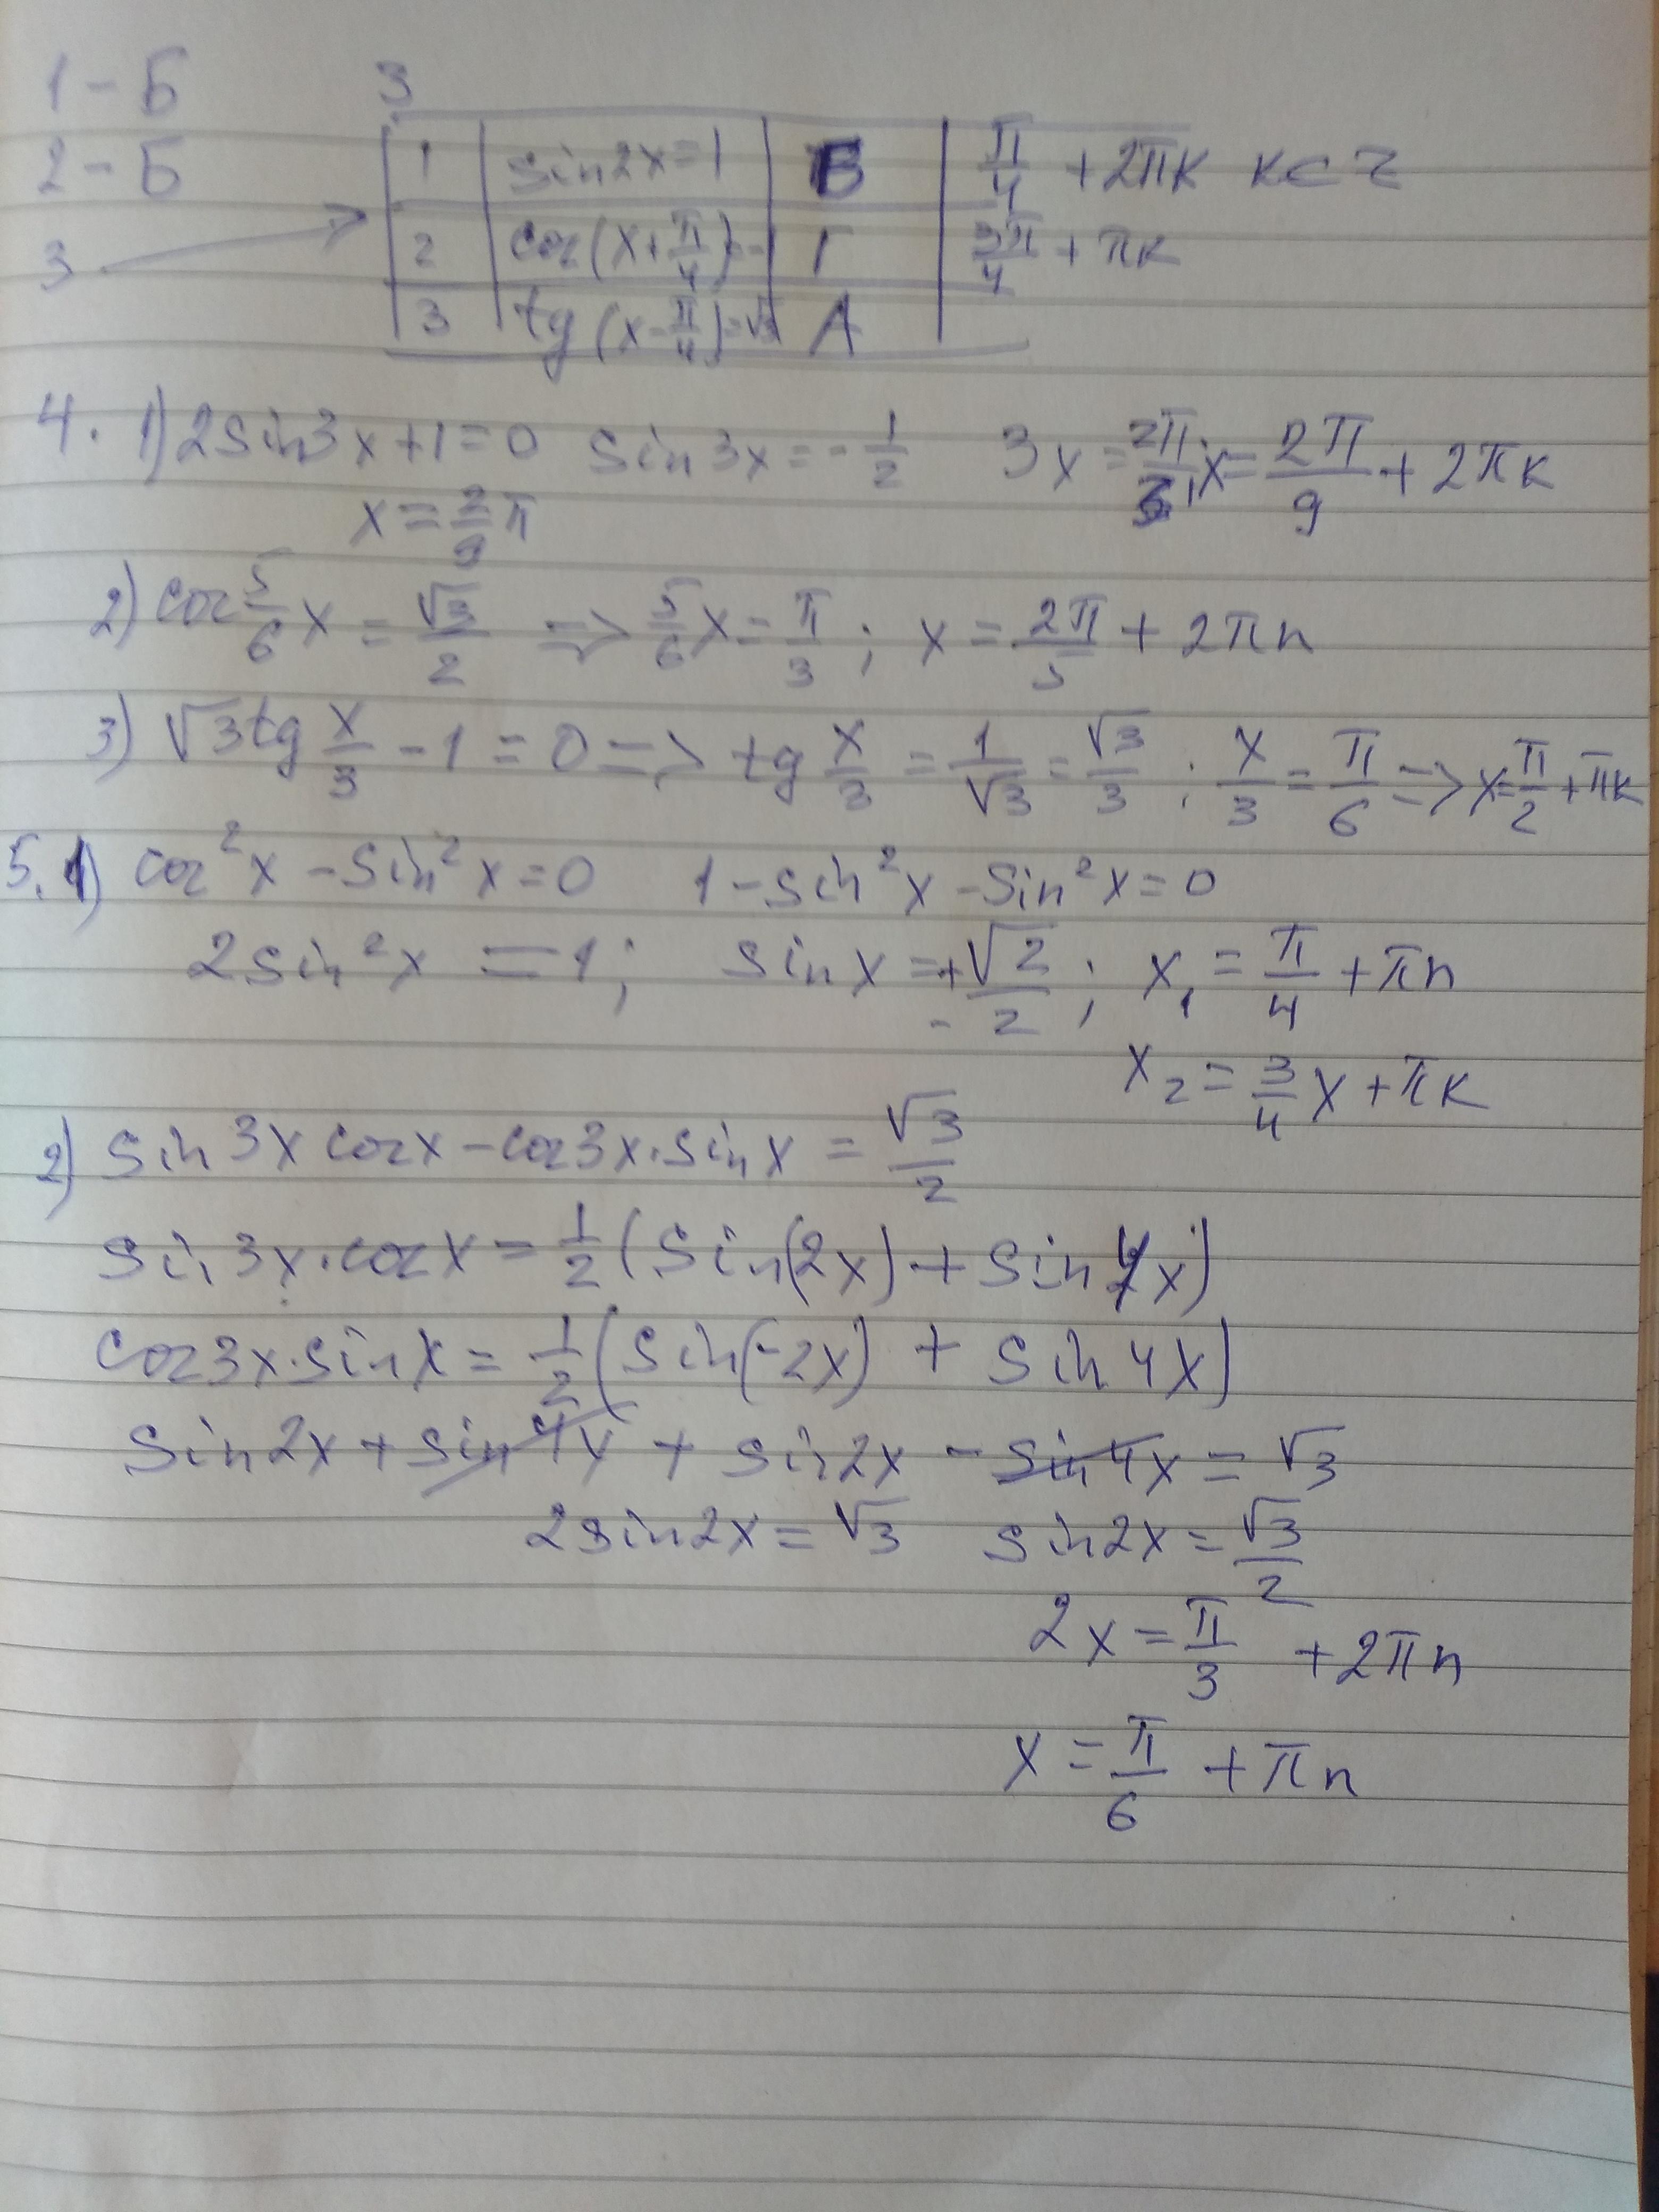 1 – Б
2 – Б
3
3.
1 | sin2x=1 | Б | π/4 + 2πk k∈Z
2 | cos(x+π/4)=-1 | Г | 3π/4 + πk
3 | tg(x-π/4)=√3 | А
4. 1) 2sin3x+1=0 sin3x=-1/2 3x= ; x=2π/9+2πk
x=2/9π
2) cos5/6x=√3/2 => 5/6x=π/3; x=2π/5+2πn
3) √3tg x/3 -1=0 => tg x/3=1/√3=√3/3; x/3=π/6 => x=π/2+πk
5. 1) cos²x-sin²x=0 1-sin²x-sin²x=0
2sin²x=1; sinx=±√2/2; x₁=π/4+πn
x₂=3/4x+πk
2) sin3xcosx-cos3x·sinx=√3/2
sin3x·cosx=1/2(sin(2x)+sin4x)
cos3x·sinx=1/2(sin(-2x)+sin4x)
sin2x+sin4x+sin2x-sin4x=√3
2sin2x=√3 sin2x=√3/2
2x=π/3+2πn
x=π/6+πn